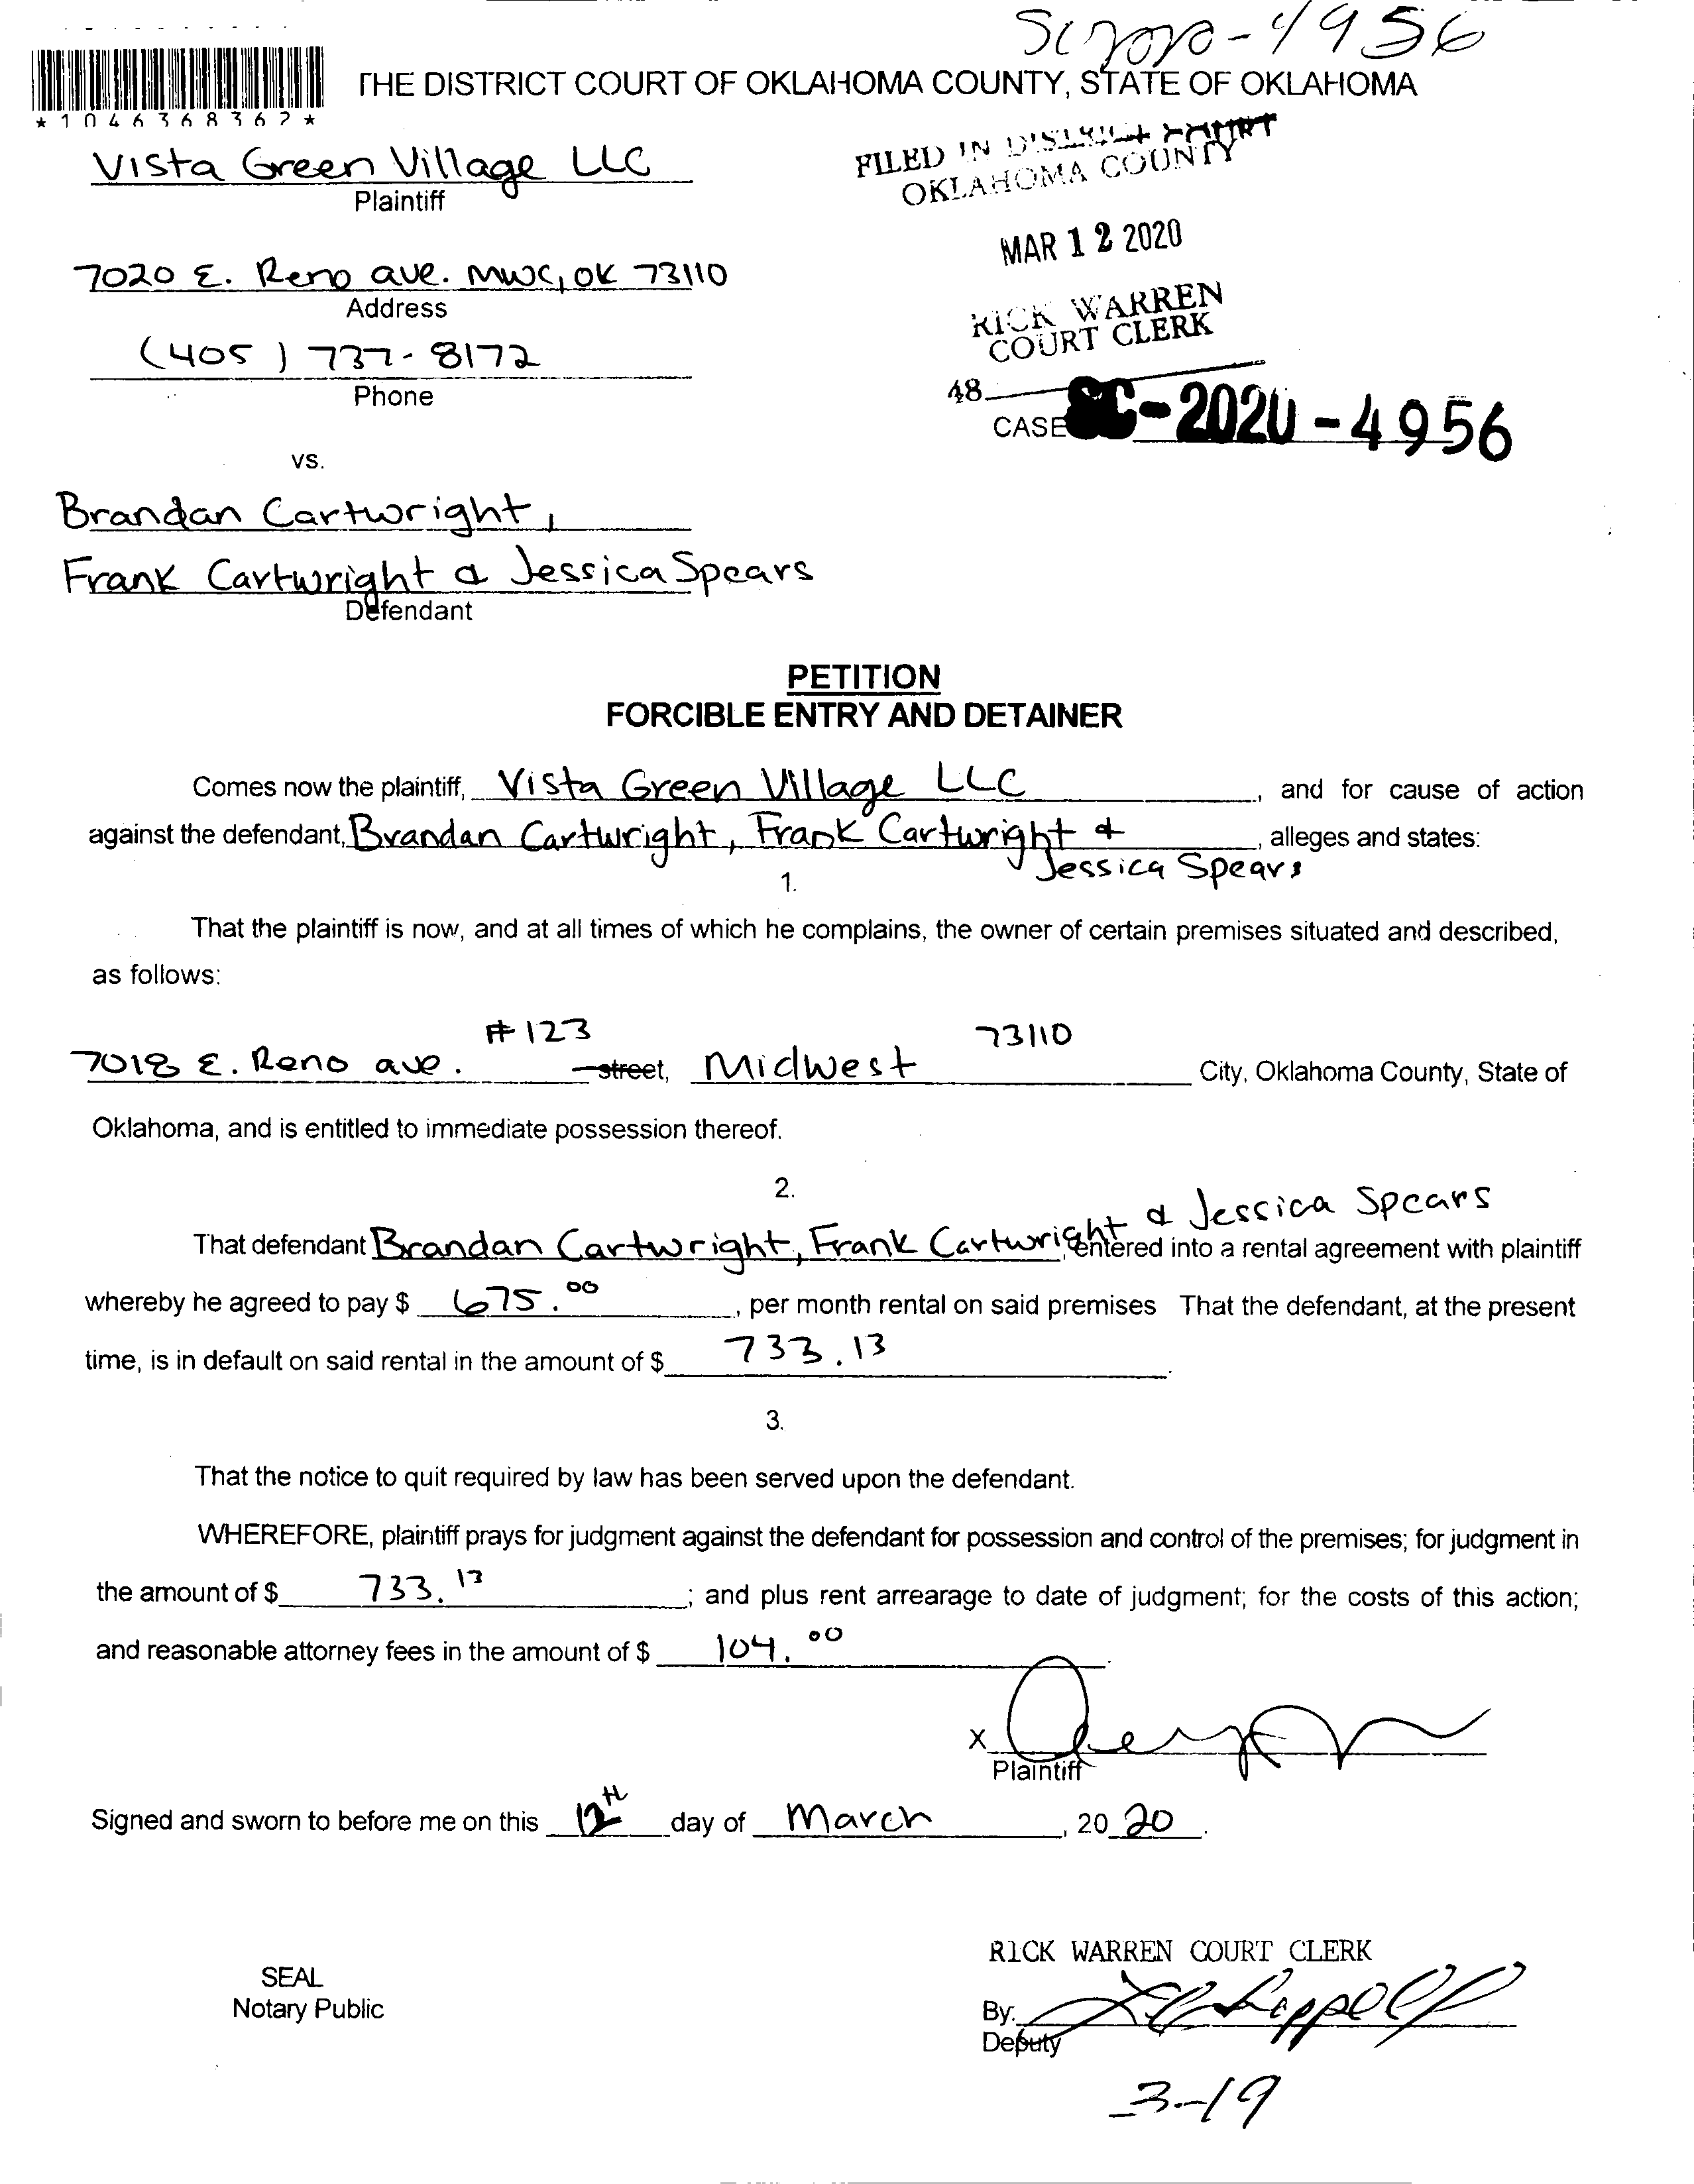 SC2020-4956
THE DISTRICT COURT OF OKLAHOMA COUNTY, STATE OF OKLAHOMA
*1046368362*
Vista Green Village LLC
Plaintiff
FILED IN DISTRICT COURT
OKLAHOMA COUNTY
MAR 12 2020
7020 E. Reno ave. MWC, OK 73110
Address
RICK WARREN
COURT CLERK
(405) 737-8172
Phone
48
CASE SC-2020-4956
vs.
Brandan Cartwright,
Frank Cartwright & Jessica Spears
Defendant
PETITION
FORCIBLE ENTRY AND DETAINER
Comes now the plaintiff, Vista Green Village LLC, and for cause of action
against the defendant, Brandan Cartwright, Frank Cartwright &, alleges and states:
Jessica Spears
1.
That the plaintiff is now, and at all times of which he complains, the owner of certain premises situated and described,
as follows:
#123 73110
7018 E. Reno ave. street, Midwest City, Oklahoma County, State of
Oklahoma, and is entitled to immediate possession thereof.
2.
& Jessica Spears
That defendant Brandan Cartwright, Frank Cartwright, entered into a rental agreement with plaintiff
whereby he agreed to pay $ 675.00, per month rental on said premises That the defendant, at the present
time, is in default on said rental in the amount of $ 733.13.
3.
That the notice to quit required by law has been served upon the defendant.
WHEREFORE, plaintiff prays for judgment against the defendant for possession and control of the premises; for judgment in
the amount of $ 733.13; and plus rent arrearage to date of judgment; for the costs of this action;
and reasonable attorney fees in the amount of $ 104.00.
X
Plaintiff
Signed and sworn to before me on this 12th day of March, 20 20.
RICK WARREN COURT CLERK
SEAL
Notary Public
By:
Deputy
3-19